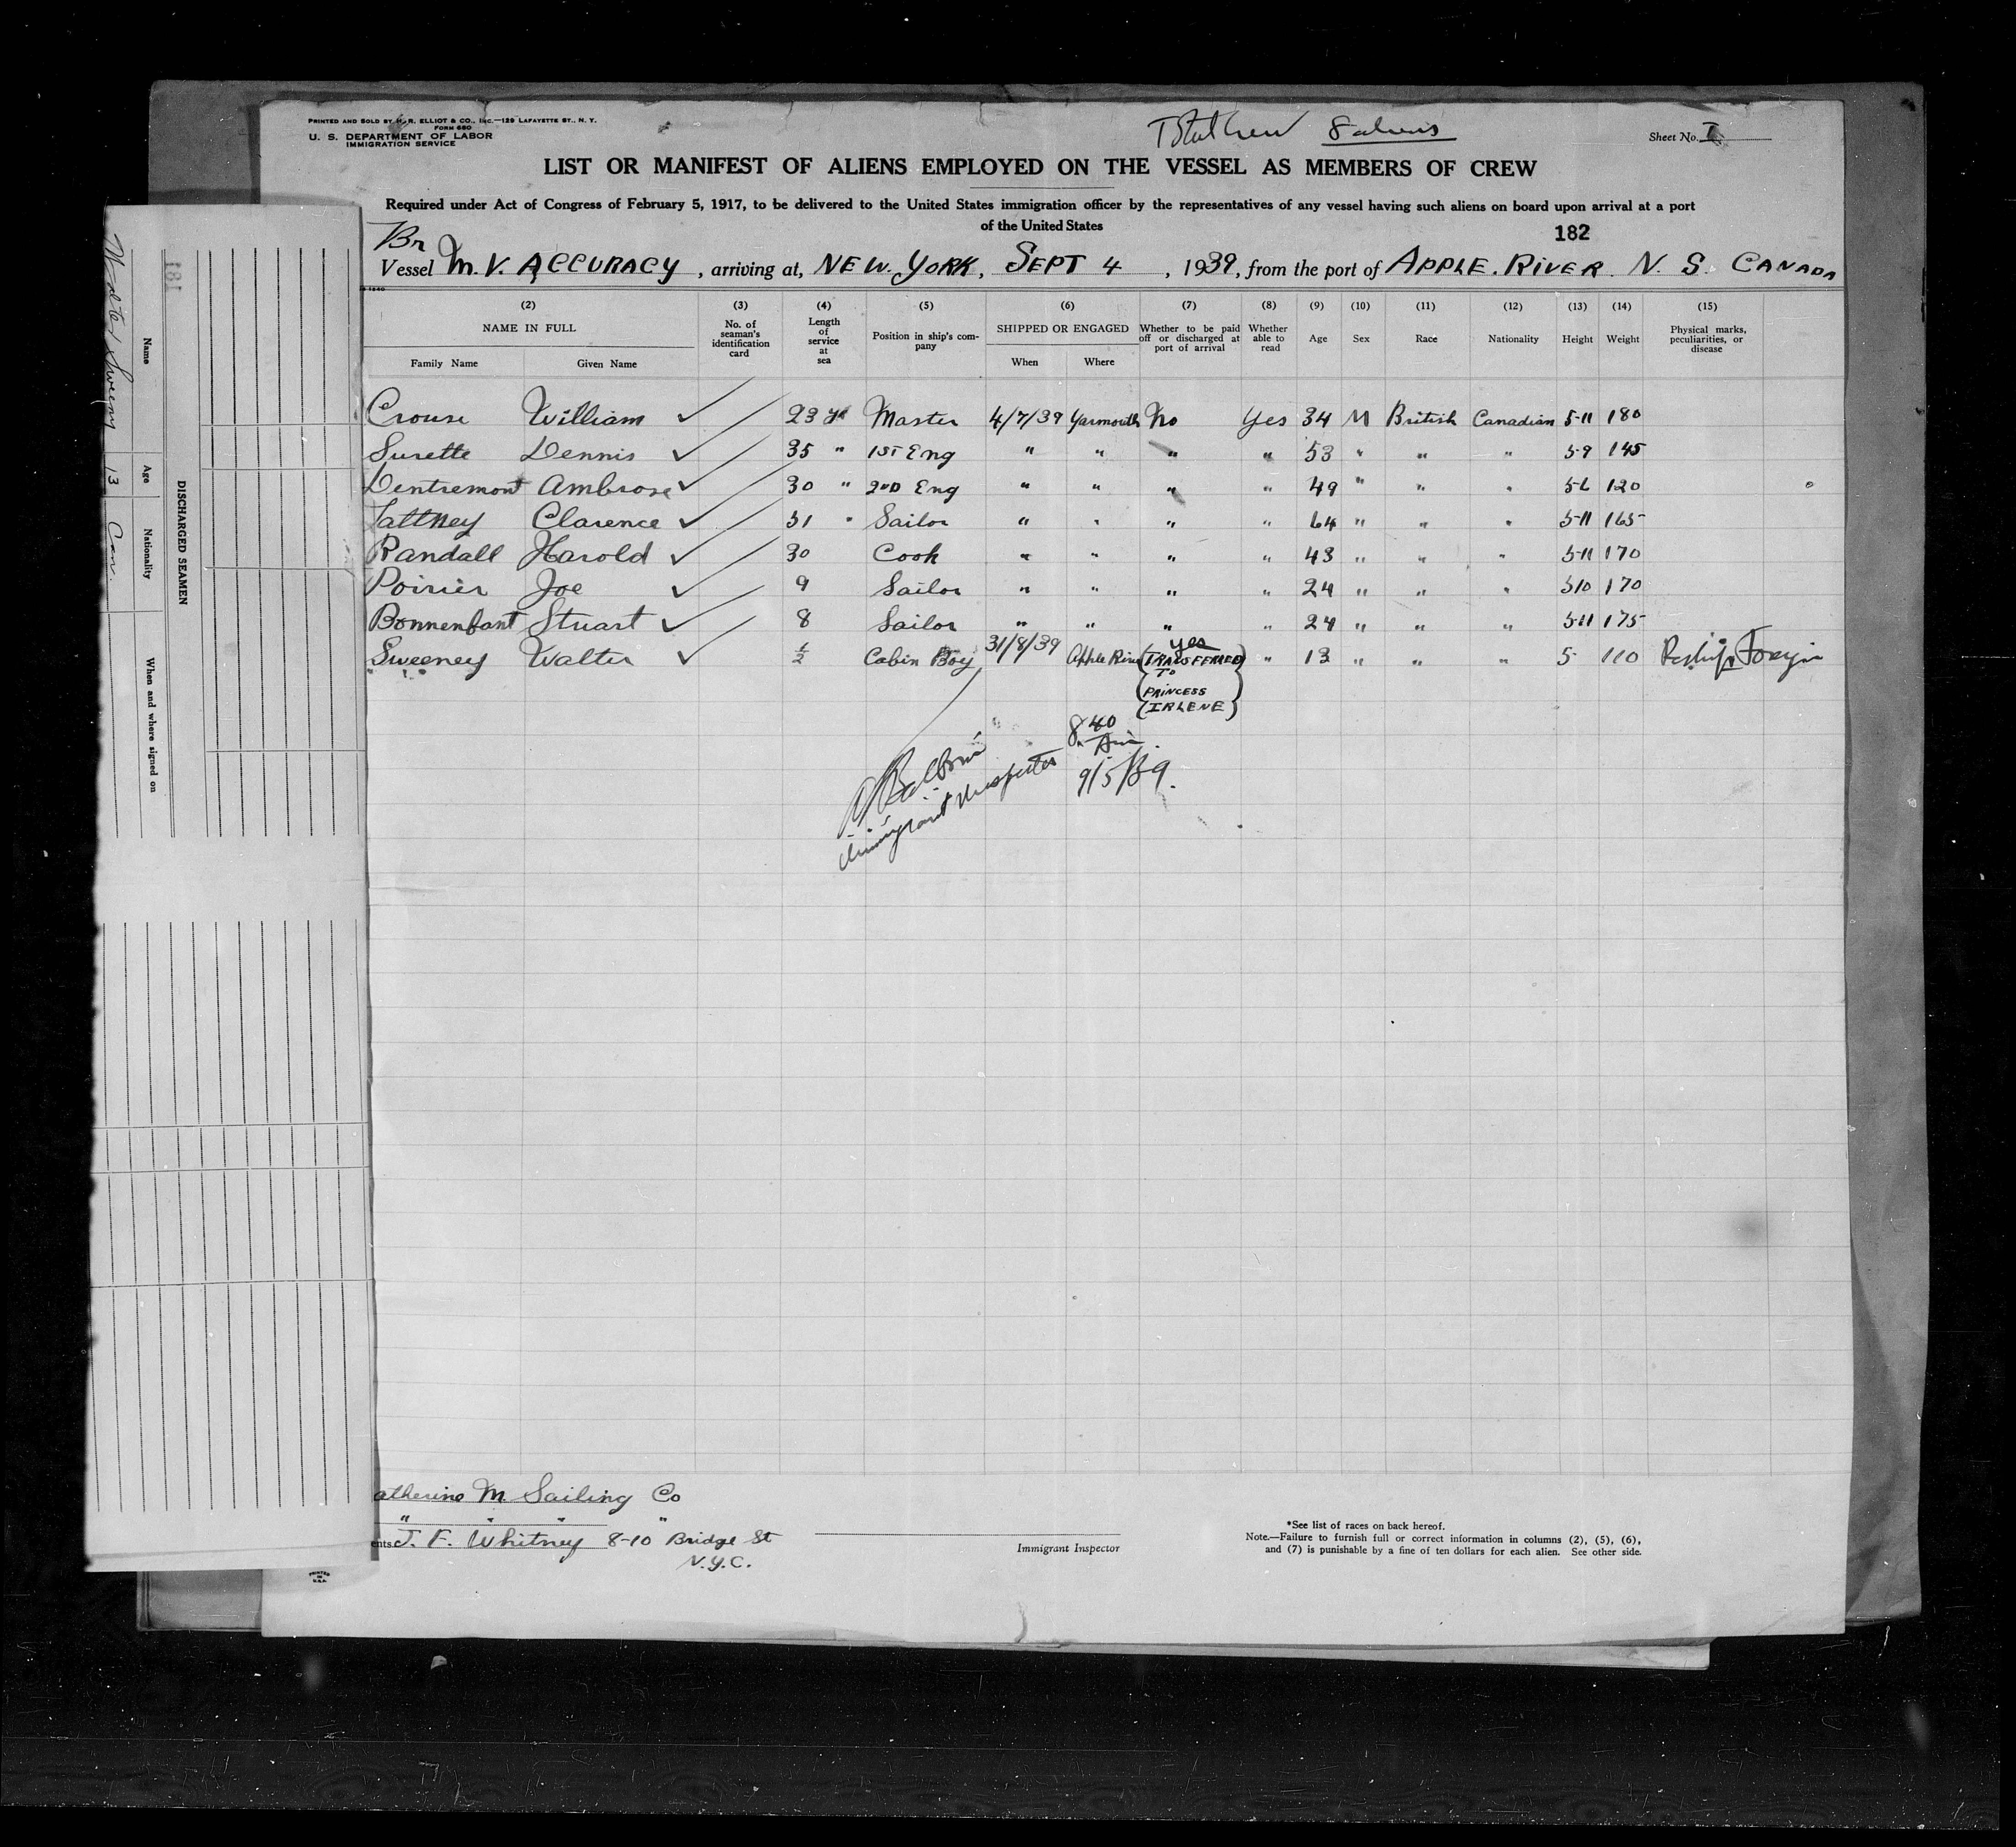 PRINTED AND SOLD BY H. R. ELLIOT & CO., INC.—129 LAFAYETTE ST., N. Y.
FORM 680
U. S. DEPARTMENT OF LABOR
IMMIGRATION SERVICE
8 aliens
Sheet No. I
LIST OR MANIFEST OF ALIENS EMPLOYED ON THE VESSEL AS MEMBERS OF CREW
Required under Act of Congress of February 5, 1917, to be delivered to the United States immigration officer by the representatives of any vessel having such aliens on board upon arrival at a port
of the United States
182
Br
Vessel M.V. ACCURACY, arriving at, NEW. YORK, SEPT 4, 1939, from the port of APPLE. RIVER. N. S. CANADA
(2) (3) (4) (5) (6) (7) (8) (9) (10) (11) (12) (13) (14) (15)
NAME IN FULL No. of seaman's identification card Length of service at sea Position in ship's company SHIPPED OR ENGAGED Whether to be paid off or discharged at port of arrival Whether able to read Age Sex Race Nationality Height Weight Physical marks, peculiarities, or disease
Family Name Given Name When Where
Crouse William ✓ 23 yr Master 4/7/39 Yarmouth No Yes 34 M British Canadian 5-11 180
Surette Dennis ✓ 35 " 1ST Eng " " " " 53 " " " 5-9 145
Dentremont Ambrose ✓ 30 " 2ND Eng " " " " 49 " " " 5-6 120
Clarence ✓ 51 " Sailor " " " " 64 " " " 5-11 165
Randall Harold ✓ 30 Cook " " " " 43 " " " 5-11 170
Poirier Joe ✓ 9 Sailor " " " " 24 " " " 5 10 170
Bonnenfant Stuart ✓ 8 Sailor " " " " 24 " " " 5-11 175
Sweeney Walter ✓ 1/2 Cabin Boy 31/8/39 Apple River yes (TRANSFERRED " 13 " " " 5 110 Reship Foreign
TO
PRINCESS
IRLENE)
8 40
Am
9/5/39.
Immigrant Inspector
181
DISCHARGED SEAMEN
Name Age Nationality When and where signed on
Walter Sweeny 13 Can.
atherine M. Sailing Co
" " " "
ents J. F. Whitney 8-10 Bridge St
N.Y.C.
Immigrant Inspector
*See list of races on back hereof.
Note.—Failure to furnish full or correct information in columns (2), (5), (6),
and (7) is punishable by a fine of ten dollars for each alien. See other side.
PRINTED
IN
U.S.A.